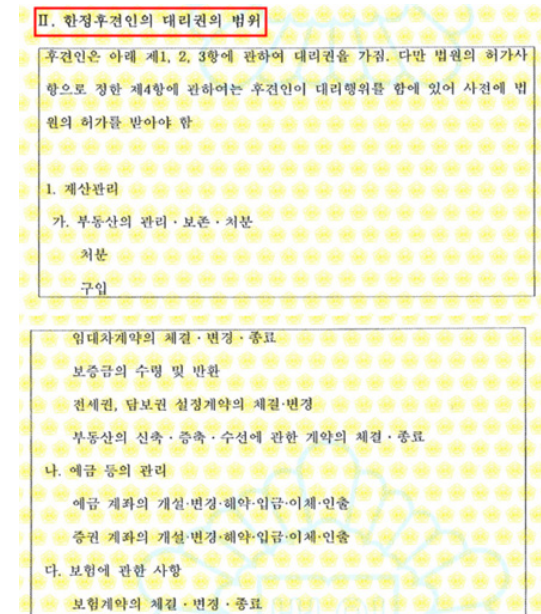 Ⅱ. 한정후견인의 대리권의 범위
후견인은 아래 제1, 2, 3항에 관하여 대리권을 가짐. 다만 법원의 허가사
항으로 정한 제4항에 관하여는 후견인이 대리행위를 함에 있어 사전에 법
원의 허가를 받아야 함
1. 재산관리
가. 부동산의 관리 · 보존 · 처분
처분
구입
임대차계약의 체결 · 변경 · 종료
보증금의 수령 및 반환
전세권, 담보권 설정계약의 체결·변경
부동산의 신축 · 증축 · 수선에 관한 계약의 체결 · 종료
나. 예금 등의 관리
예금 계좌의 개설·변경·해약·입금·이체·인출
증권 계좌의 개설·변경·해약·입금·이체·인출
다. 보험에 관한 사항
보험계약의 체결 · 변경 · 종료